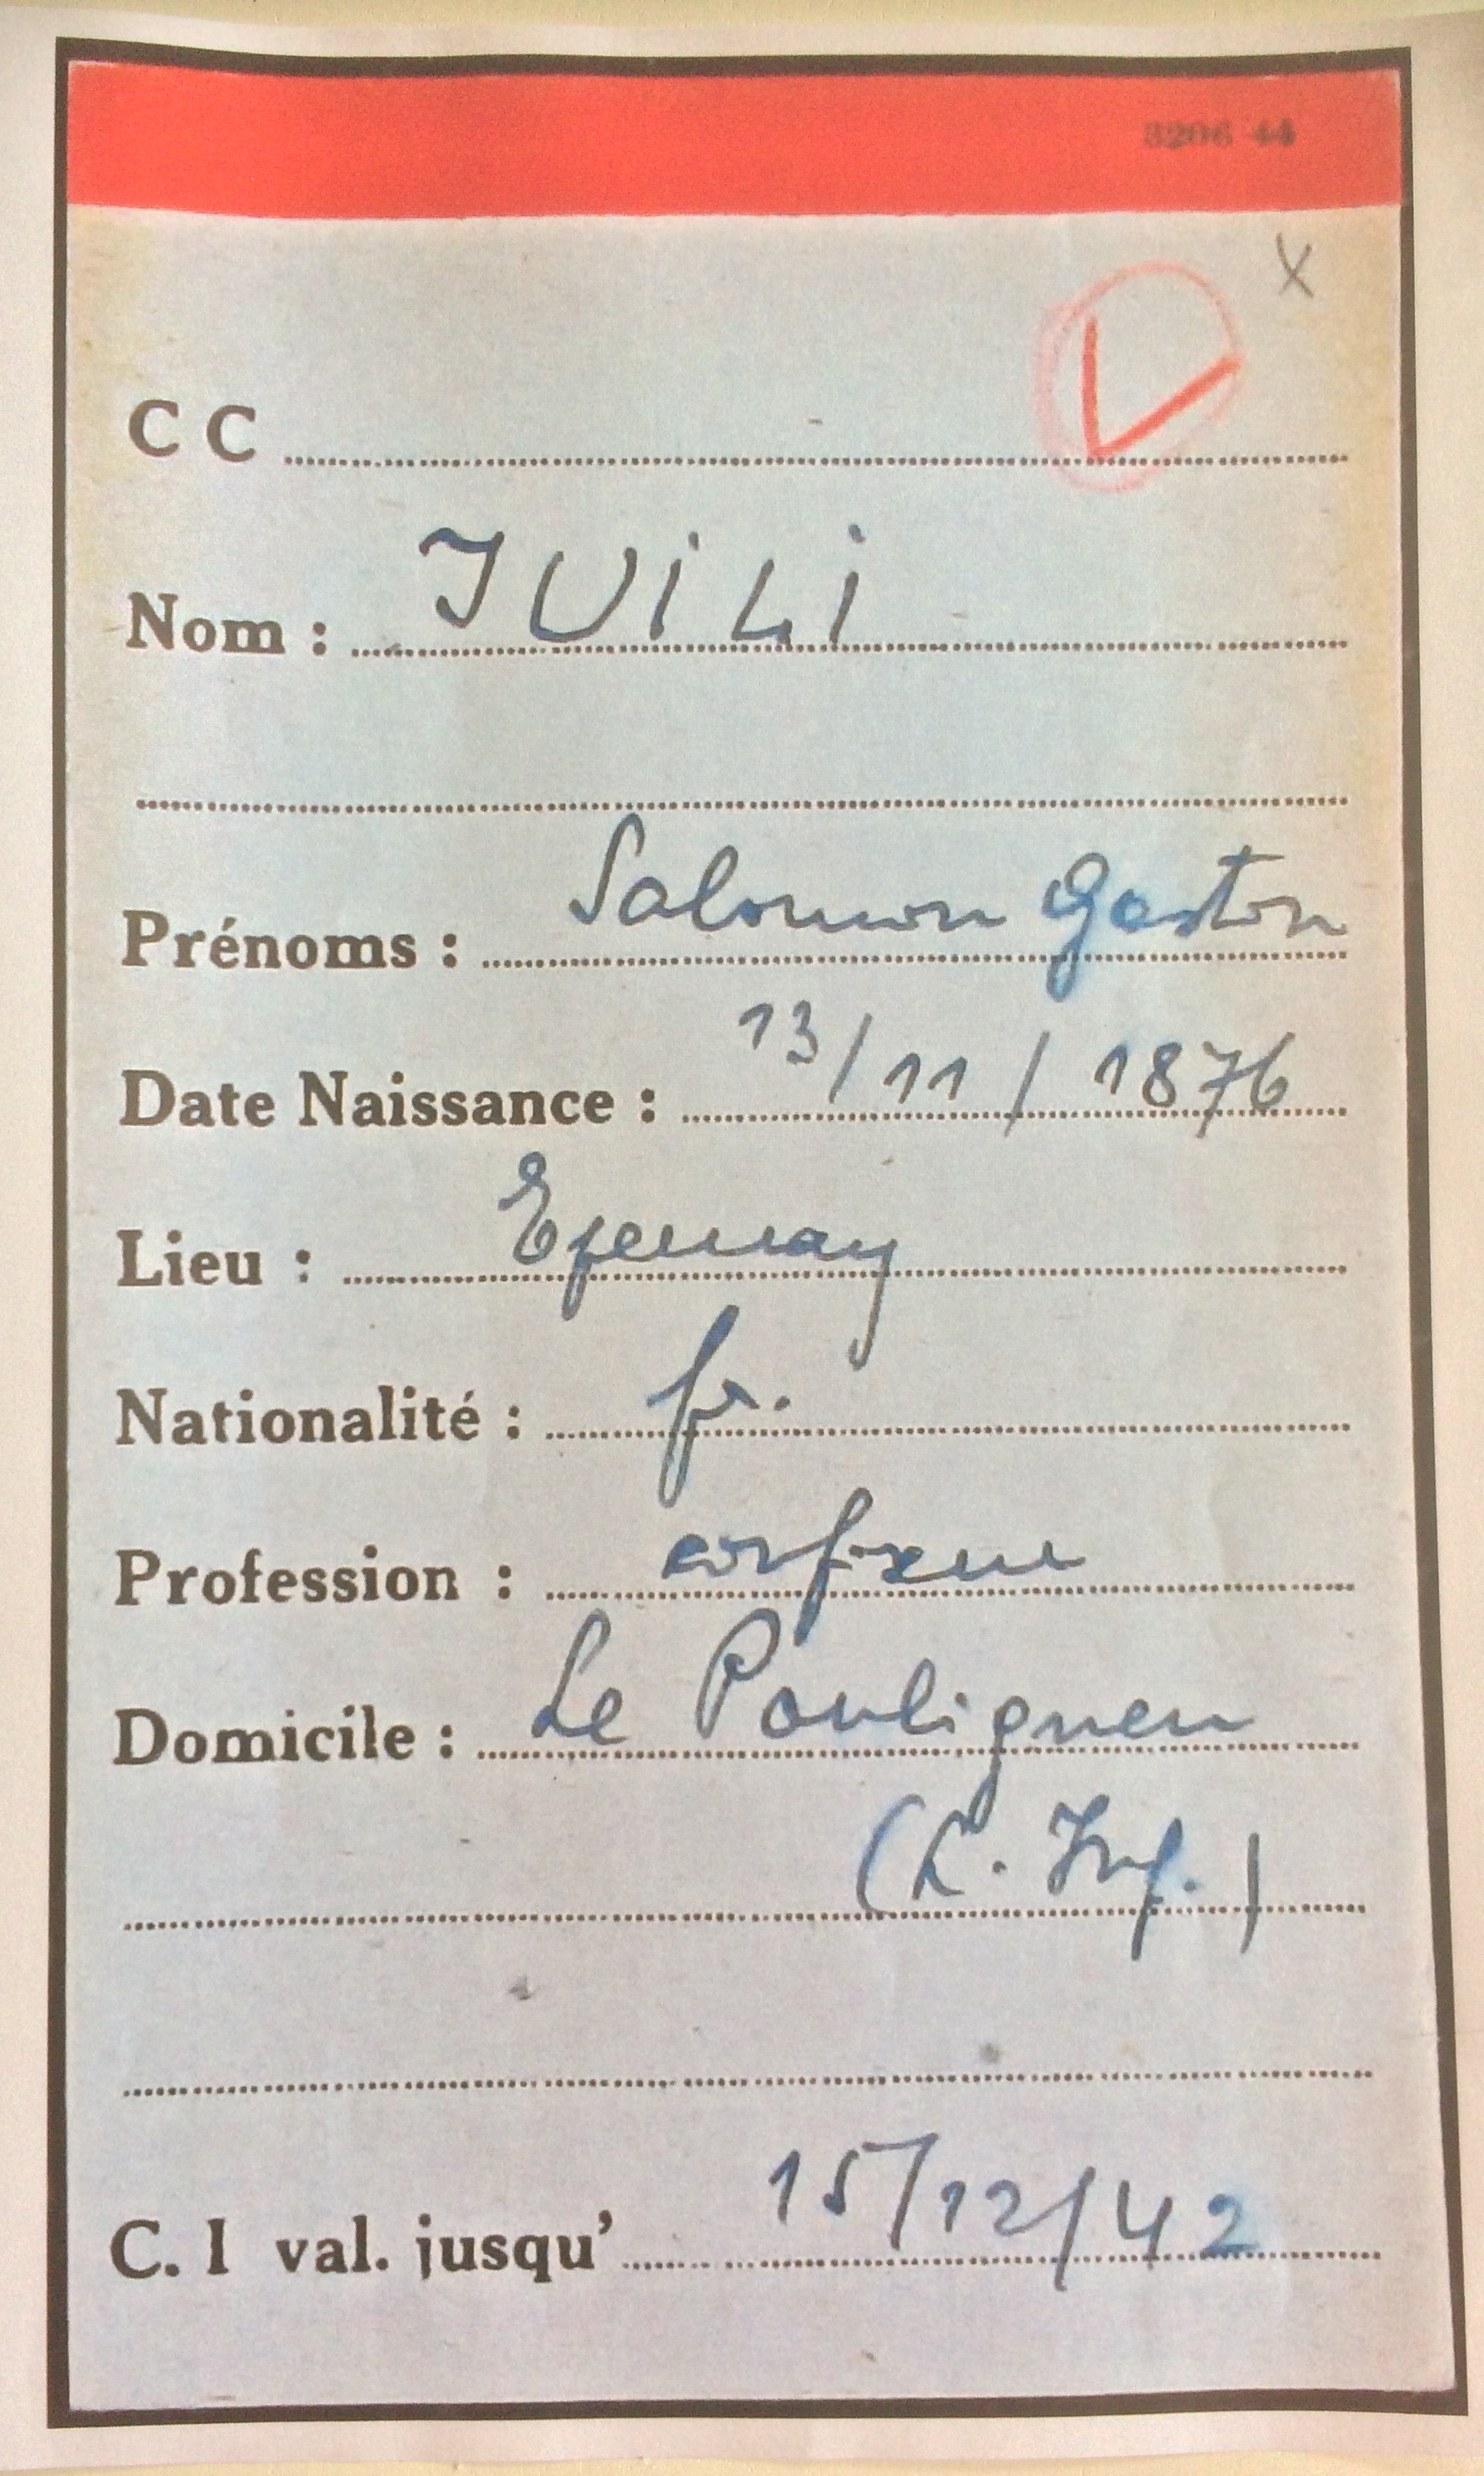 3206 44
X
V
C C
Nom : JUiLi
Prénoms : Salomon Gaston
Date Naissance : 13/11/1876
Lieu : Epernay
Nationalité : fr.
Profession :
Domicile : Le Pouliguen
(L. Inf.)
C. I val. jusqu' 15/12/42